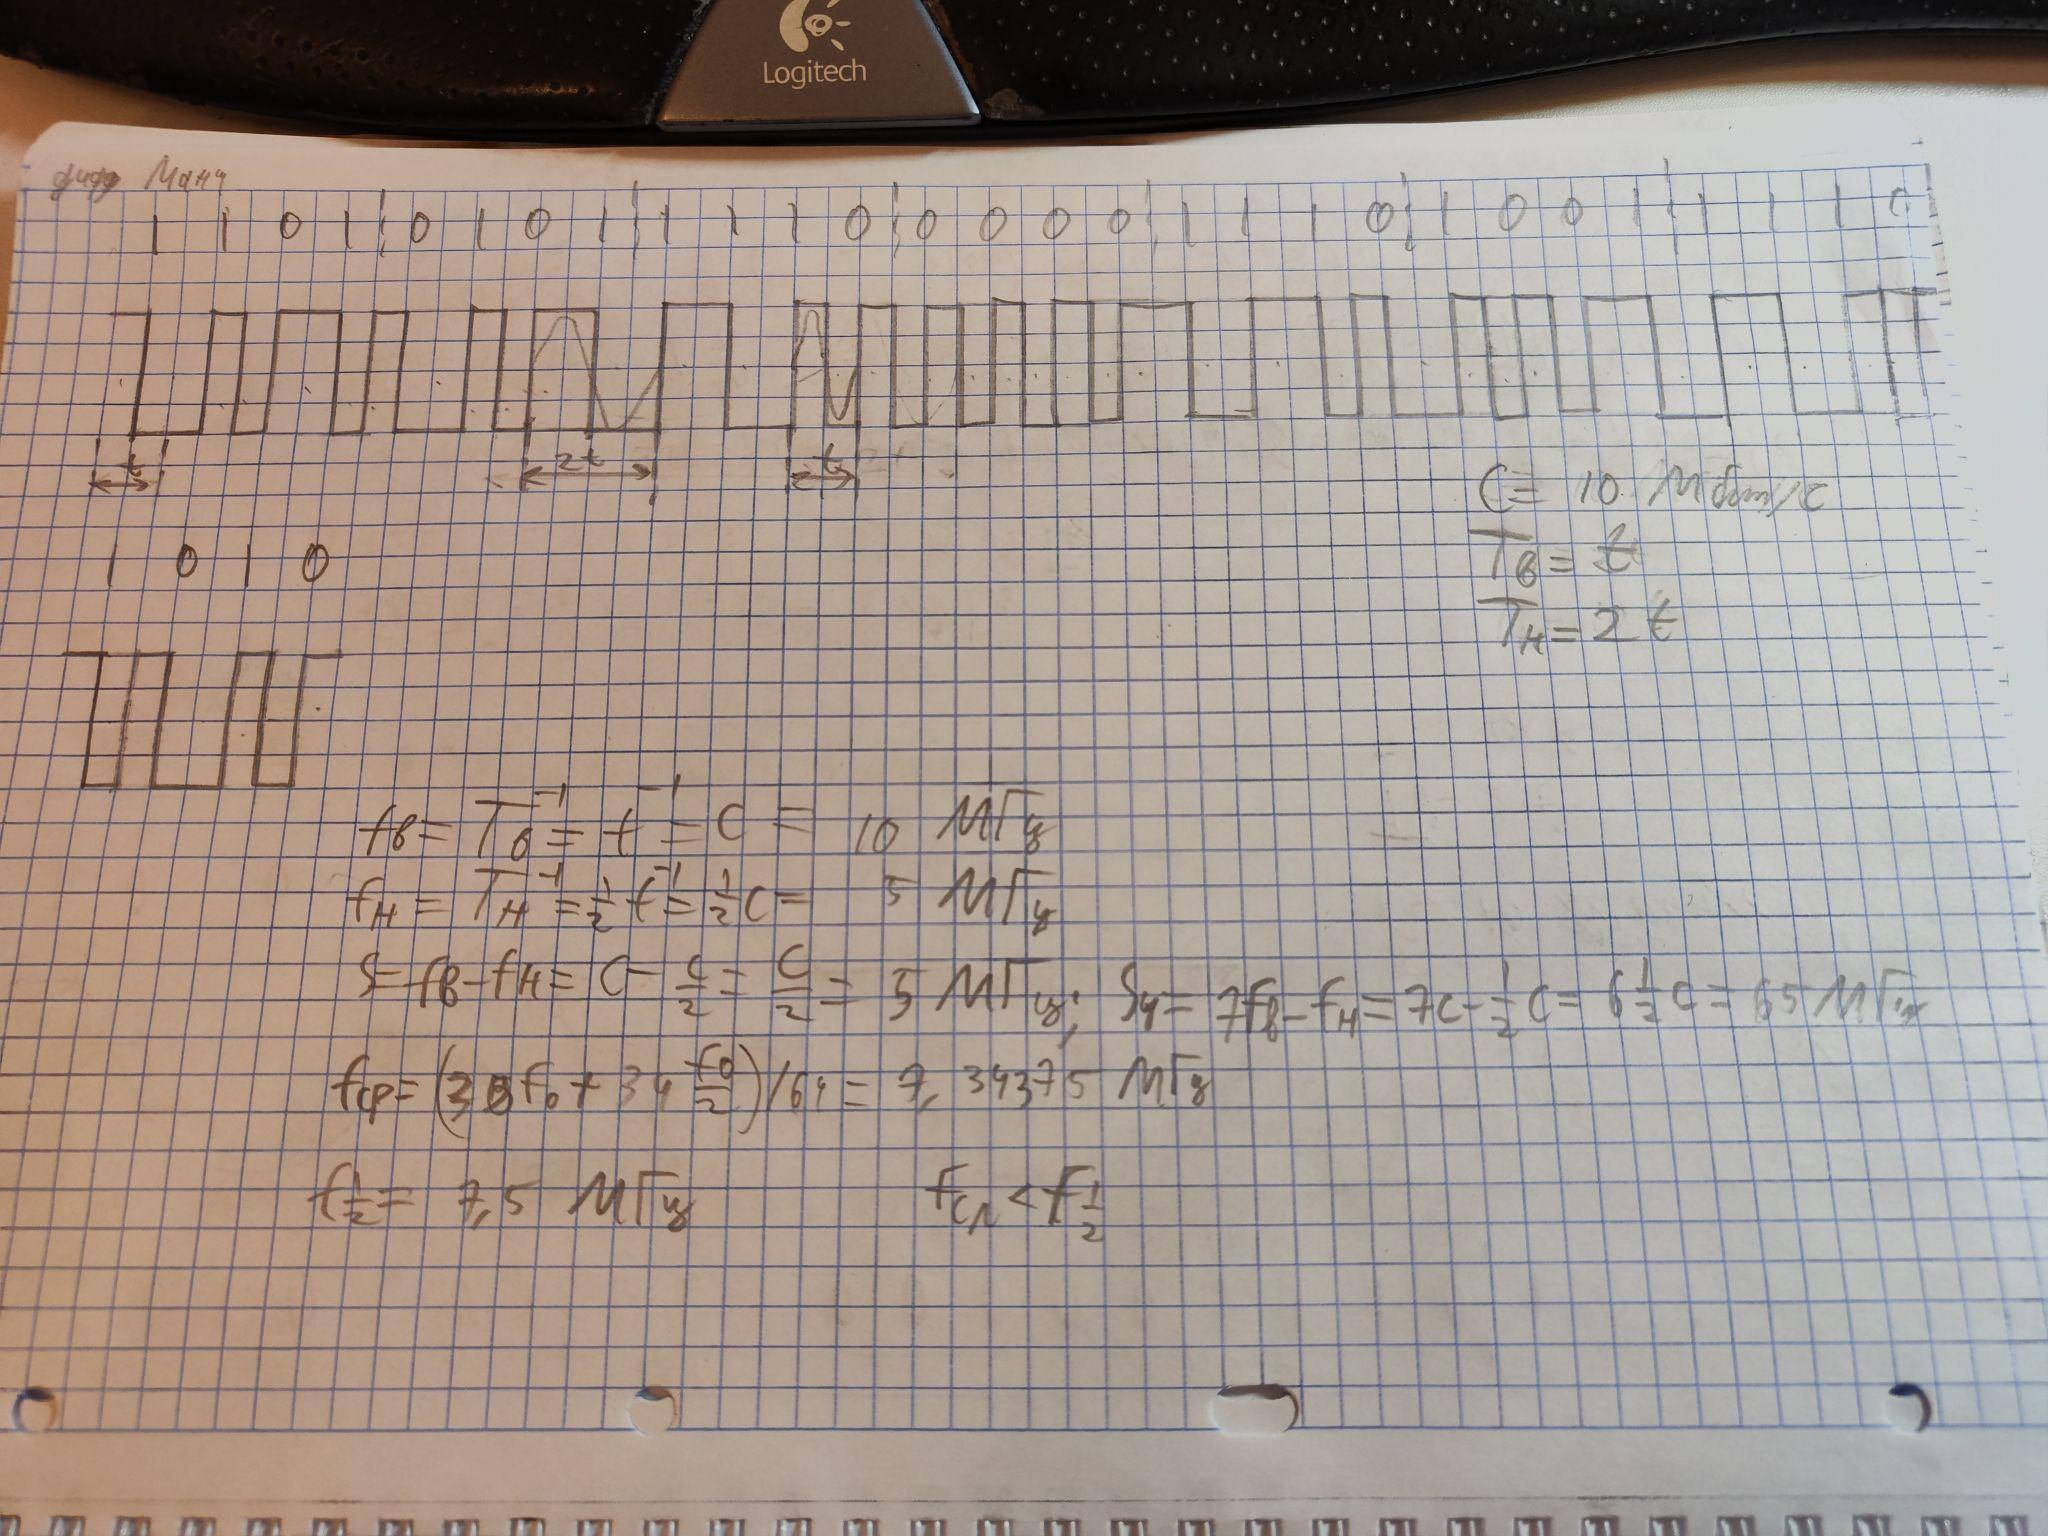 Logitech
Манч
1 1 0 1 0 1 0 1 1 1 1 0 0 0 0 0 1 1 1 0 1 0 0 1 1 1 1 0
t 2t t
C = 10 Мбит/с
Tв = t
Tн = 2t
1 0 1 0
fв = Tв⁻¹ = t⁻¹ = C = 10 МГц
fн = Tн⁻¹ = 1/2 t⁻¹ = 1/2 C = 5 МГц
S = fв - fн = C - C/2 = C/2 = 5 МГц; S4 = 7fв - fн = 7C - 1/2 C = 6 1/2 C = 65 МГц
fср = (30f0 + 34 f0/2)/64 = 7,34375 МГц
f1/2 = 7,5 МГц fср < f1/2